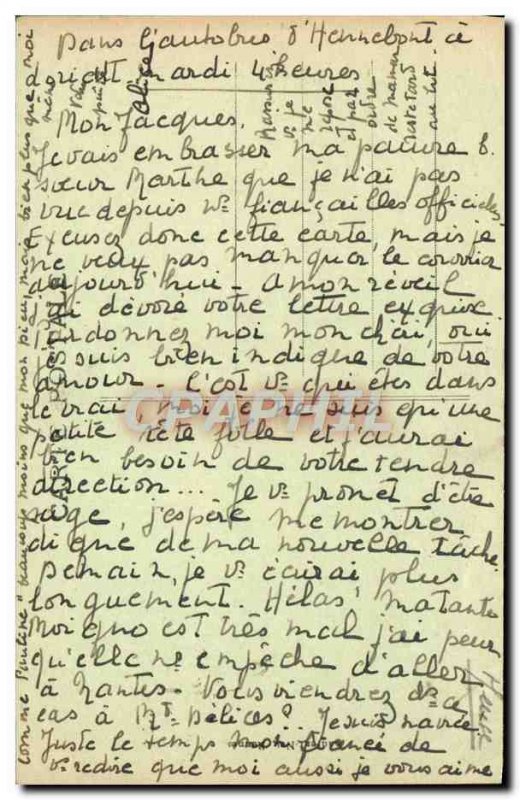 Dans l'autobus d'Hennebont à
Lorient mardi 4 heures
Mon Jacques.
Je vais embrasser ma pauvre b.
soeur Marthe que je n'ai pas
vue depuis ns fiançailles officielles
Excusez donc cette carte, mais je
ne veux pas manquer le courrier
aujourd'hui - A mon réveil
j'ai dévoré votre lettre exquise
Pardonnez moi mon chéri, oui
je suis bien indigne de votre
amour - C'est vs qui êtes dans
le vrai moi je ne suis qu'une
petite tête folle et j'aurai
bien besoin de votre tendre
direction... Je vs promet d'être
sage, j'espère me montrer
digne de ma nouvelle tâche.
Demain, je vs écrirai plus
longuement. Hélas! ma tante
Moigno est très mal j'ai peur
qu'elle ne empêche d'aller
à Nantes - Vous viendrez ds ce
cas à Mt Délices? Je suis navrée
Juste le temps mon fiancé de
vs redire que moi aussi je vous aime
comme Pauline "beaucoup moins que mon Dieu, mais bien plus que moi
même
Rassurez
vs je
me
repose
et par
ordre
de maman
suis tard
au lit
CARTE POSTALE
CPAPHIL